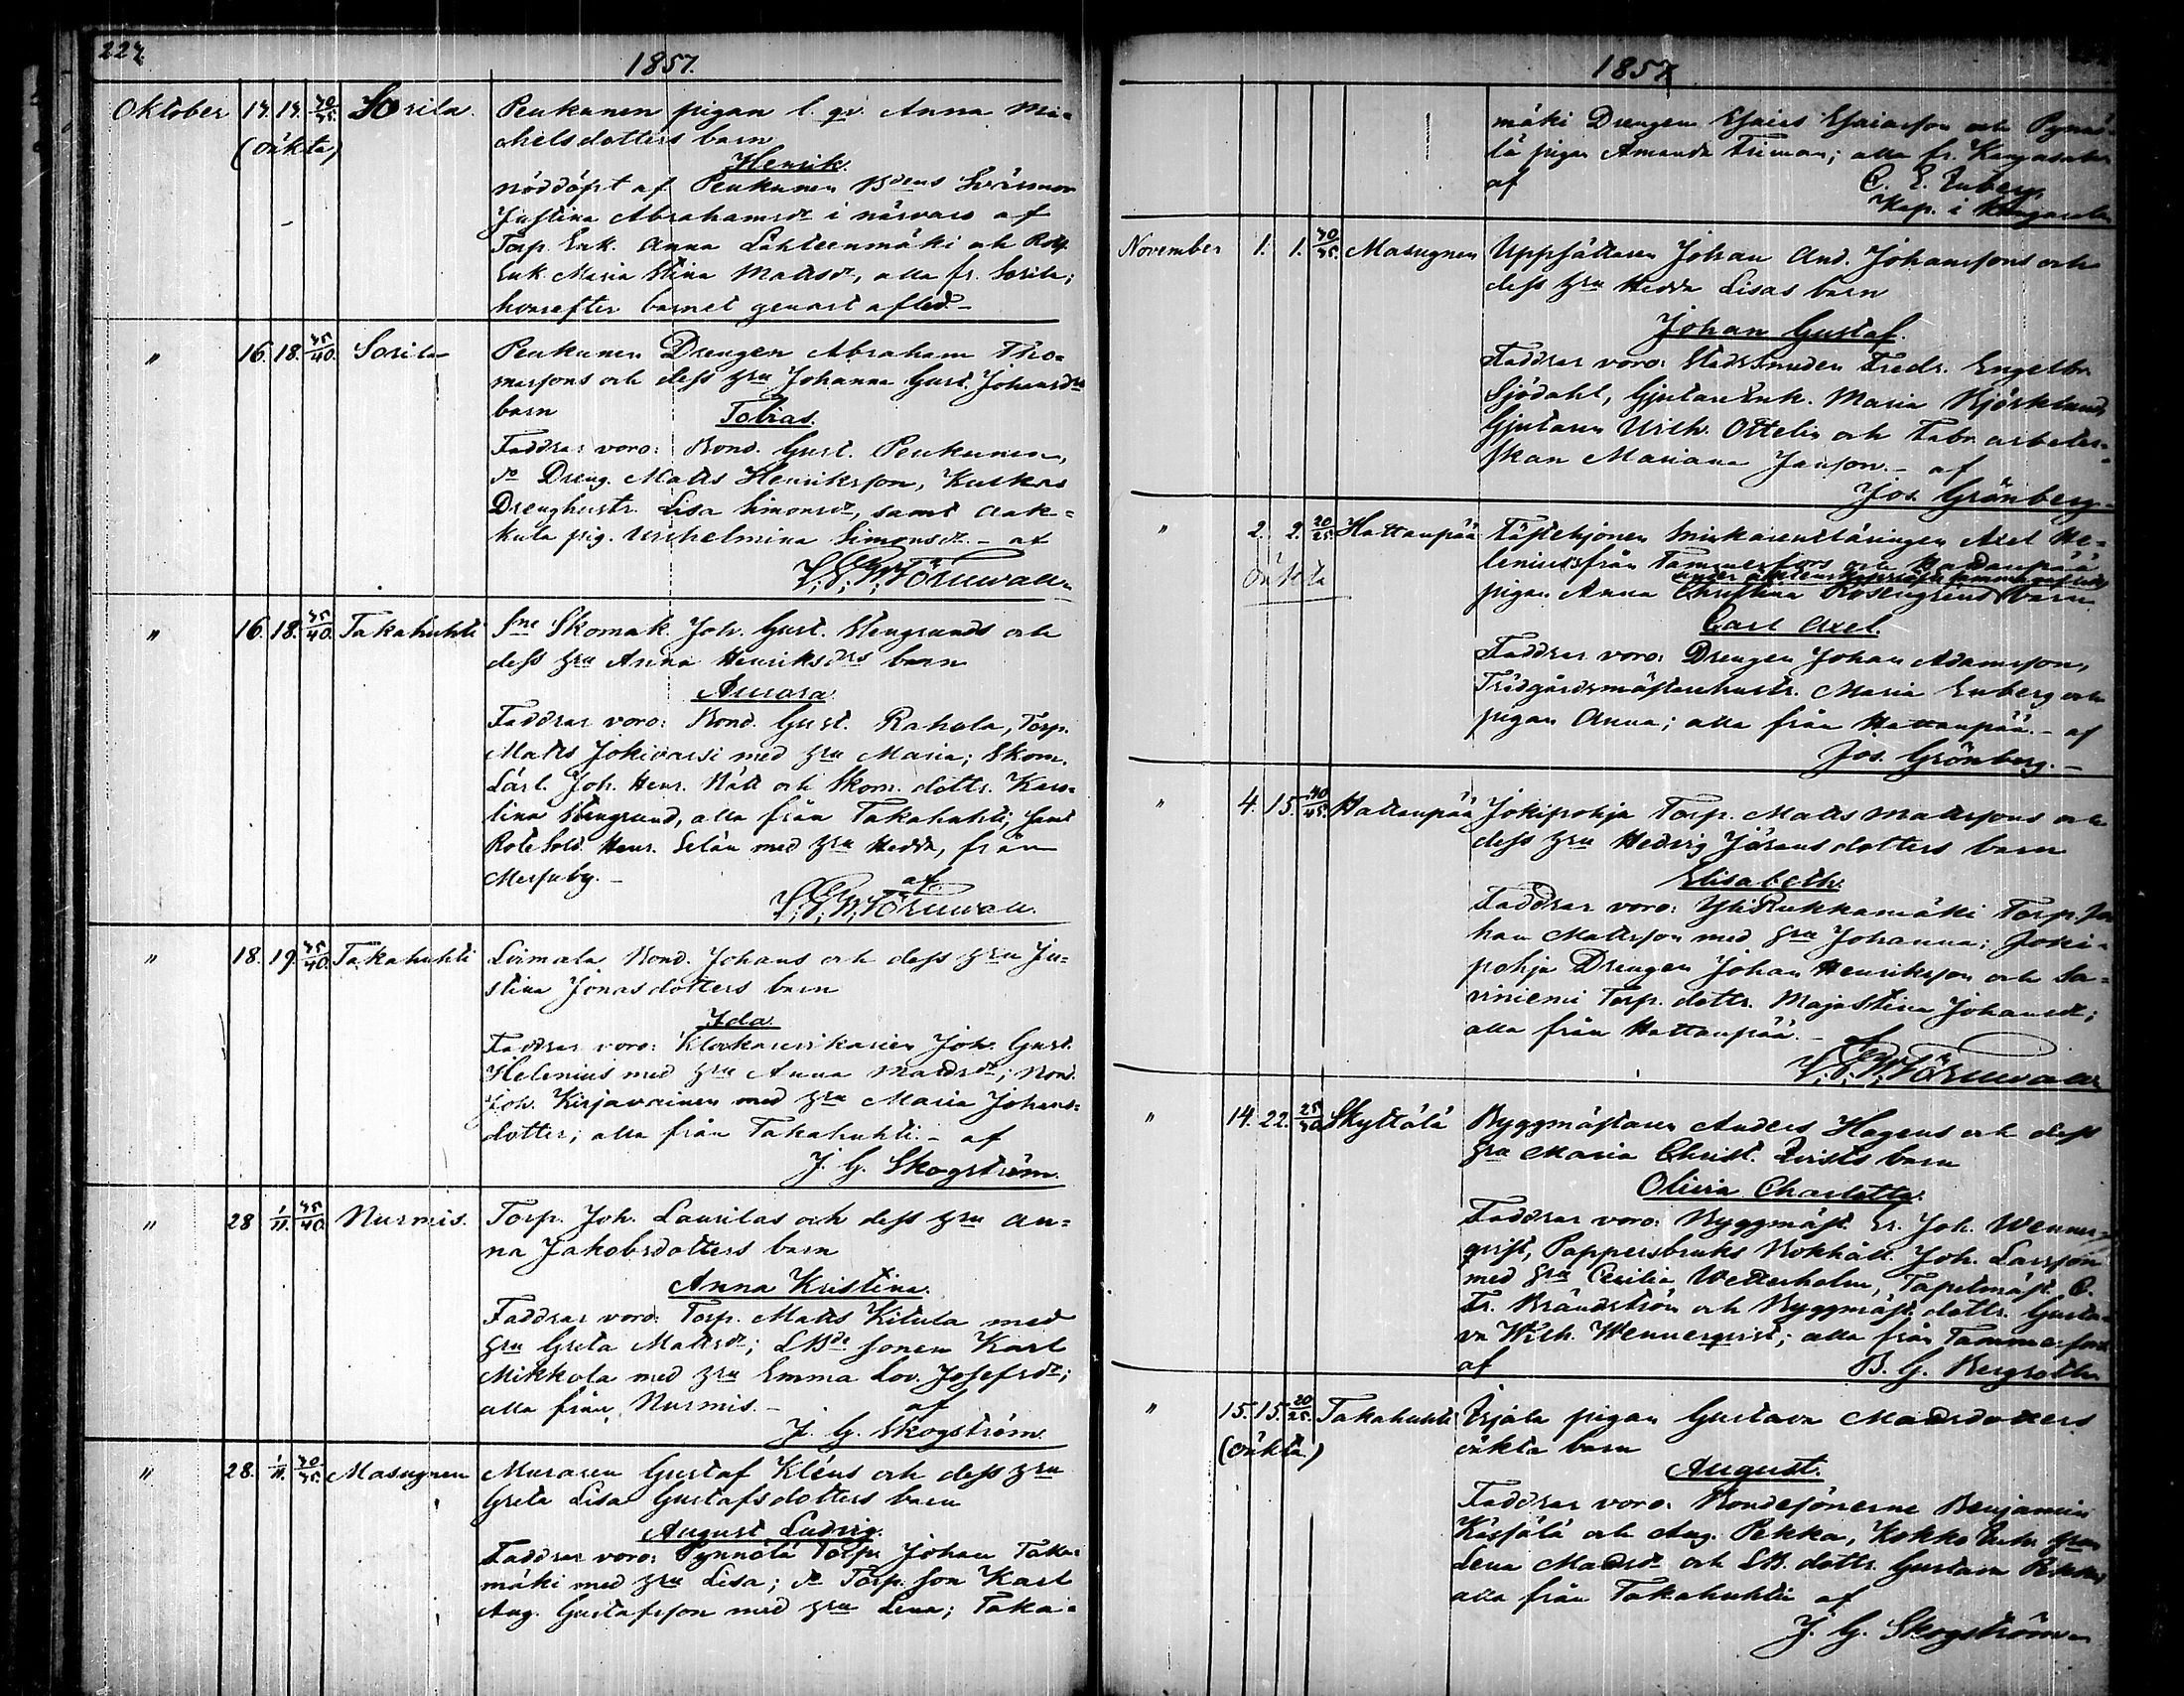 224.
1857.
Oktober 14. 14. 30/35. Sorila. Penkunen pigan l. qv. Anna Mi-
(oäkta) chelsdotters barn
Henrik.
nöddöpt af Penkunen Bdens Svärmor
Justina Abrahamsdr i närvaro af
Torp. Enk. Anna Lahteenmäki och Rotf.
Enk. Maria Stina Mattsdr, alla fr. Sorila;
hvarefter barnet genast afled.-
" 16. 18. 35/40. Sorila Penkunen Drengen Abraham Tho-
massons och dess hru Johanna Gust. Johansdrs
barn Tobias.
Faddrar voro: Bond. Gust. Penkunen,
do Dreng. Matts Henriksson, Kulkas
Drenghustr. Lisa Simonsdr, samt Aak-
kula pig. Wilhelmina Simonsdr.- af
Törnwall.
" 16. 18. 35/40. Takahuhti Sne Skomak. Joh. Gust. Stengrunds och
dess hru Anna Henriksdrs barn
Aurora
Faddrar voro: Bond. Gust. Rahola, Torp.
Matts Jokivarsi med hru Maria; Skom.
Lärl. Joh. Henr. Nätt och Skom. dottr. Karo-
lina Stengrund, alla från Takahuhti; samt
Rote Sold. Henr. Selän med hru Hedda, från
Messuby.- af
Törnwall.
" 18. 19. 35/40. Takahuhti Liimala Bond. Johans och dess hru Ju-
stina Jonasdotters barn
Ida.
Faddrar voro: Klockarevikarien Joh. Gust.
Helenius med hru Anna Mattsdr; Bond.
Joh. Kirjavainen med hru Maria Johans-
dotter; alla från Takahuhti.- af
J. G. Skogström.
" 28 1/11. 35/40. Nurmis. Torp. Joh. Laurilas och dess hru An-
na Jakobsdotters barn
Anna Kristina.
Faddrar voro: Torp. Matts Kitula med
hru Greta Mattsdr; LBde sonen Karl
Mikkola med hru Emma Lov. Josefsdr;
alla från Nurmis.- af
J. G. Skogström.
" 28. 1/11. 30/35. Masugnen Muraren Gustaf Kléns och dess hru
Greta Lisa Gustafsdotters barn
August Ludvig.
Faddrar voro: Pynnölä Torp. Johan Taka-
mäki med hru Lisa; do Torp. son Karl
Aug. Gustafsson med hru Lena; Taka-
1857
mäki Drengen Esaias Esaiasson och Pynnö-
lä pigan Amanda Friman; alla fr. Kangasala
af C. E. Enberg,
Kap. i Kangasala
November 1. 1. 30/35. Masugnen Uppsättaren Johan And. Johanssons och
dess hru Hedda Lisas barn
Johan Gustaf.
Faddrar voro: Stads Smeden Fredr. Engelbr.
Sjödahl, Gjutare Enk. Maria Björklund,
Gjutaren Wilh. Ottelin och Fabr. arbeter-
skan Mariana Janson.- af
Jos. Grönberg.-
" 2. 2. 20/25. Hattanpää Fästehjonen Murkarelärlingen Axel He-
oäkta leniuss från Tammerfors och Hattanpää
pigan Anna Christina Rosengrens barn
Carl Axel.
Faddrar voro: Drengen Johan Adamsson,
Trädgårdsmästarehustr. Maria Enberg och
pigan Anna; alla från Hattanpää.- af
Jos. Grönberg.-
" 4. 15. 40/45. Hattanpää Jokipohja Torp. Matts Mattssons och
dess hru Hedvig Göransdotters barn
Elisabeth.
Faddrar voro: Yli Rukkamäki Torp. Jo
han Mattsson med hru Johanna; Joki-
pohja Drengen Johan Henriksson och Sa-
viniemi Torp. dottr. Maja Stina Johansdr;
alla från Hattanpää.-
Törnwall
" 14. 22. 25/30. Skyttälä Byggmästaren Anders Hagens och dess
hru Maria Christ. Qvists barn
Olivia Charlotta.
Faddrar voro: Byggmäst. Er. Joh. Wenner-
qvist, Pappersbruks Bokhåll. Joh. Larsson
med hru Cecilia Wetterholm, Tapetmäst. C.
Fr. Brändström och Byggmäst. dottr. Gusta-
va Wilh. Wennerqvist; alla från Tammerfors
af B. G. Bergroth
" 15. 15. 20/25. Takahuhti Irjala pigan Gustava Mattsdotters
(oäkta) oäkta barn
August.
Faddrar voro: Bondesönerne Benjamin
Kässälä och Aug. Pekka, Kokko Enk. hru
Lena Mattsdr och LB. dottr. Gustava Pekka
alla från Takahuhti af
J. G. Skogström